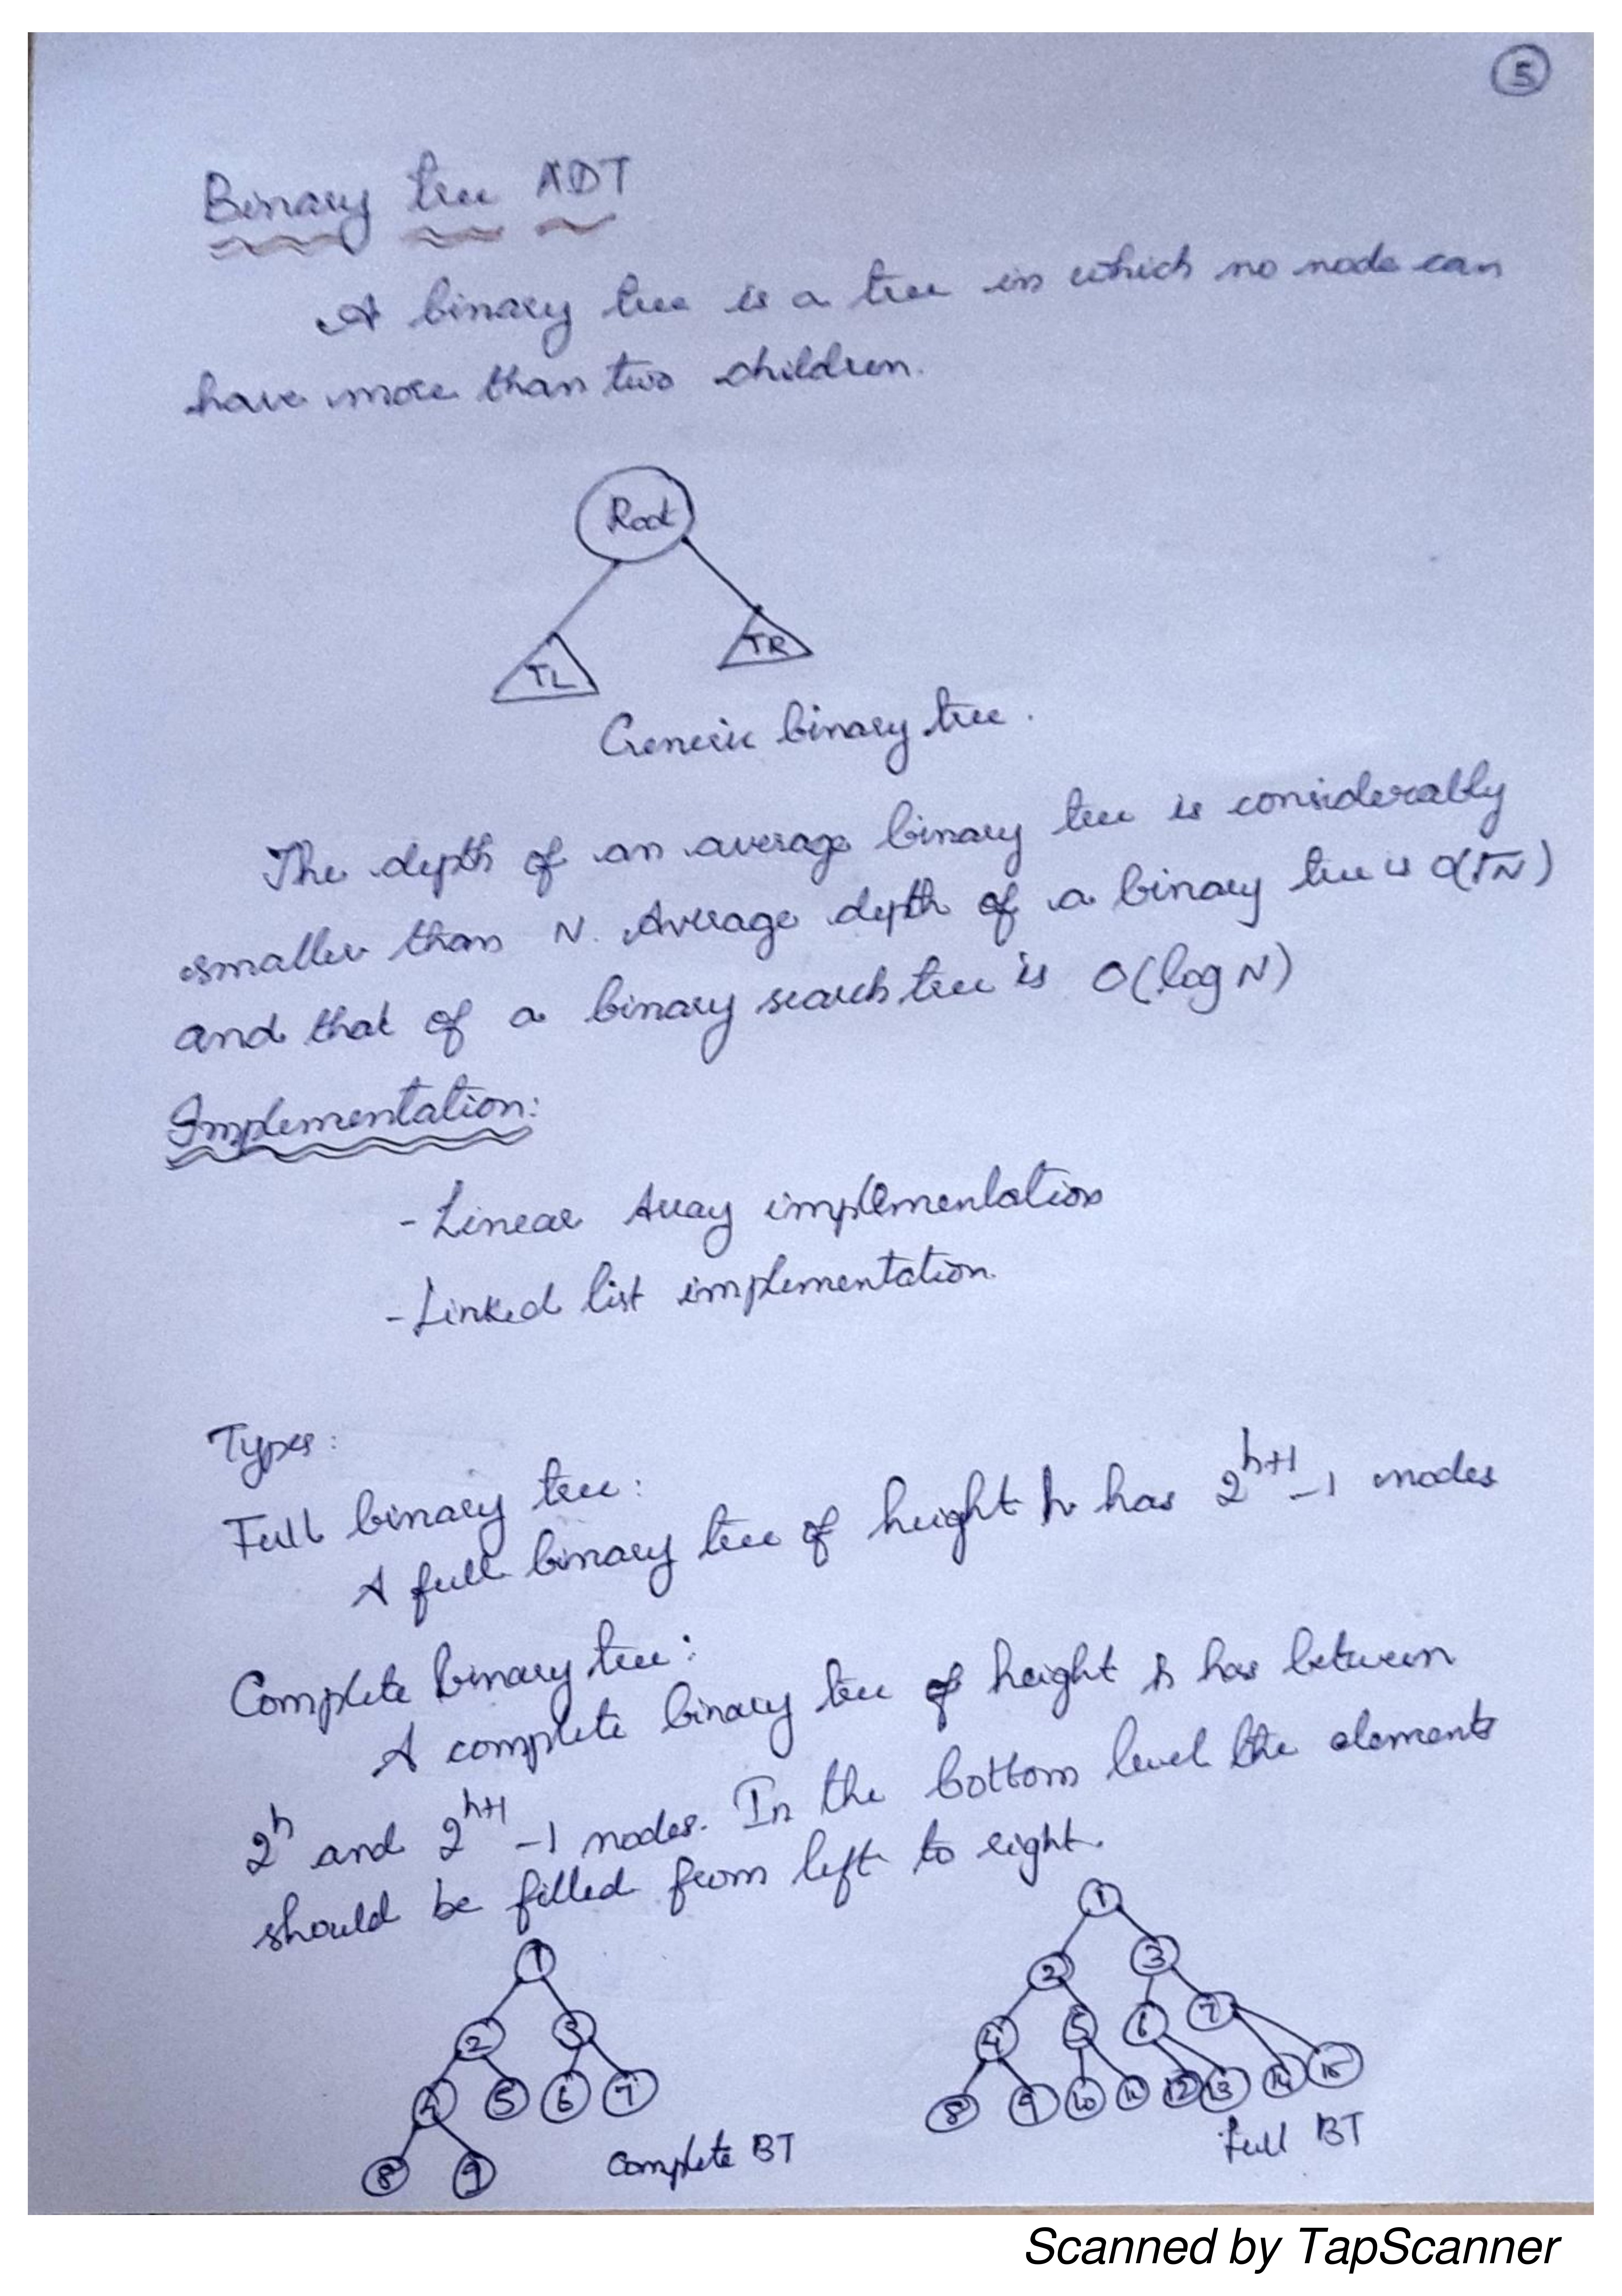 5
Binary tree ADT
A binary tree is a tree in which no node can
have more than two children.
Root
TL
TR
Generic binary tree.
The depth of an average binary tree is considerably
smaller than N. Average depth of a binary tree is O(√N)
and that of a binary search tree is O(log N)
Implementation:
- Linear Array implementation
- Linked list implementation.
Types:
Full binary tree:
A full binary tree of height h has 2^{h+1} - 1 nodes
Complete binary tree:
A complete binary tree of height h has between
2^h and 2^{h+1} - 1 nodes. In the bottom level the elements
should be filled from left to right.
1
2 3
4 5 6 7
8 9
Complete BT
1
2 3
4 5 6 7
8 9 10 11 12 13 14 15
Full BT
Scanned by TapScanner